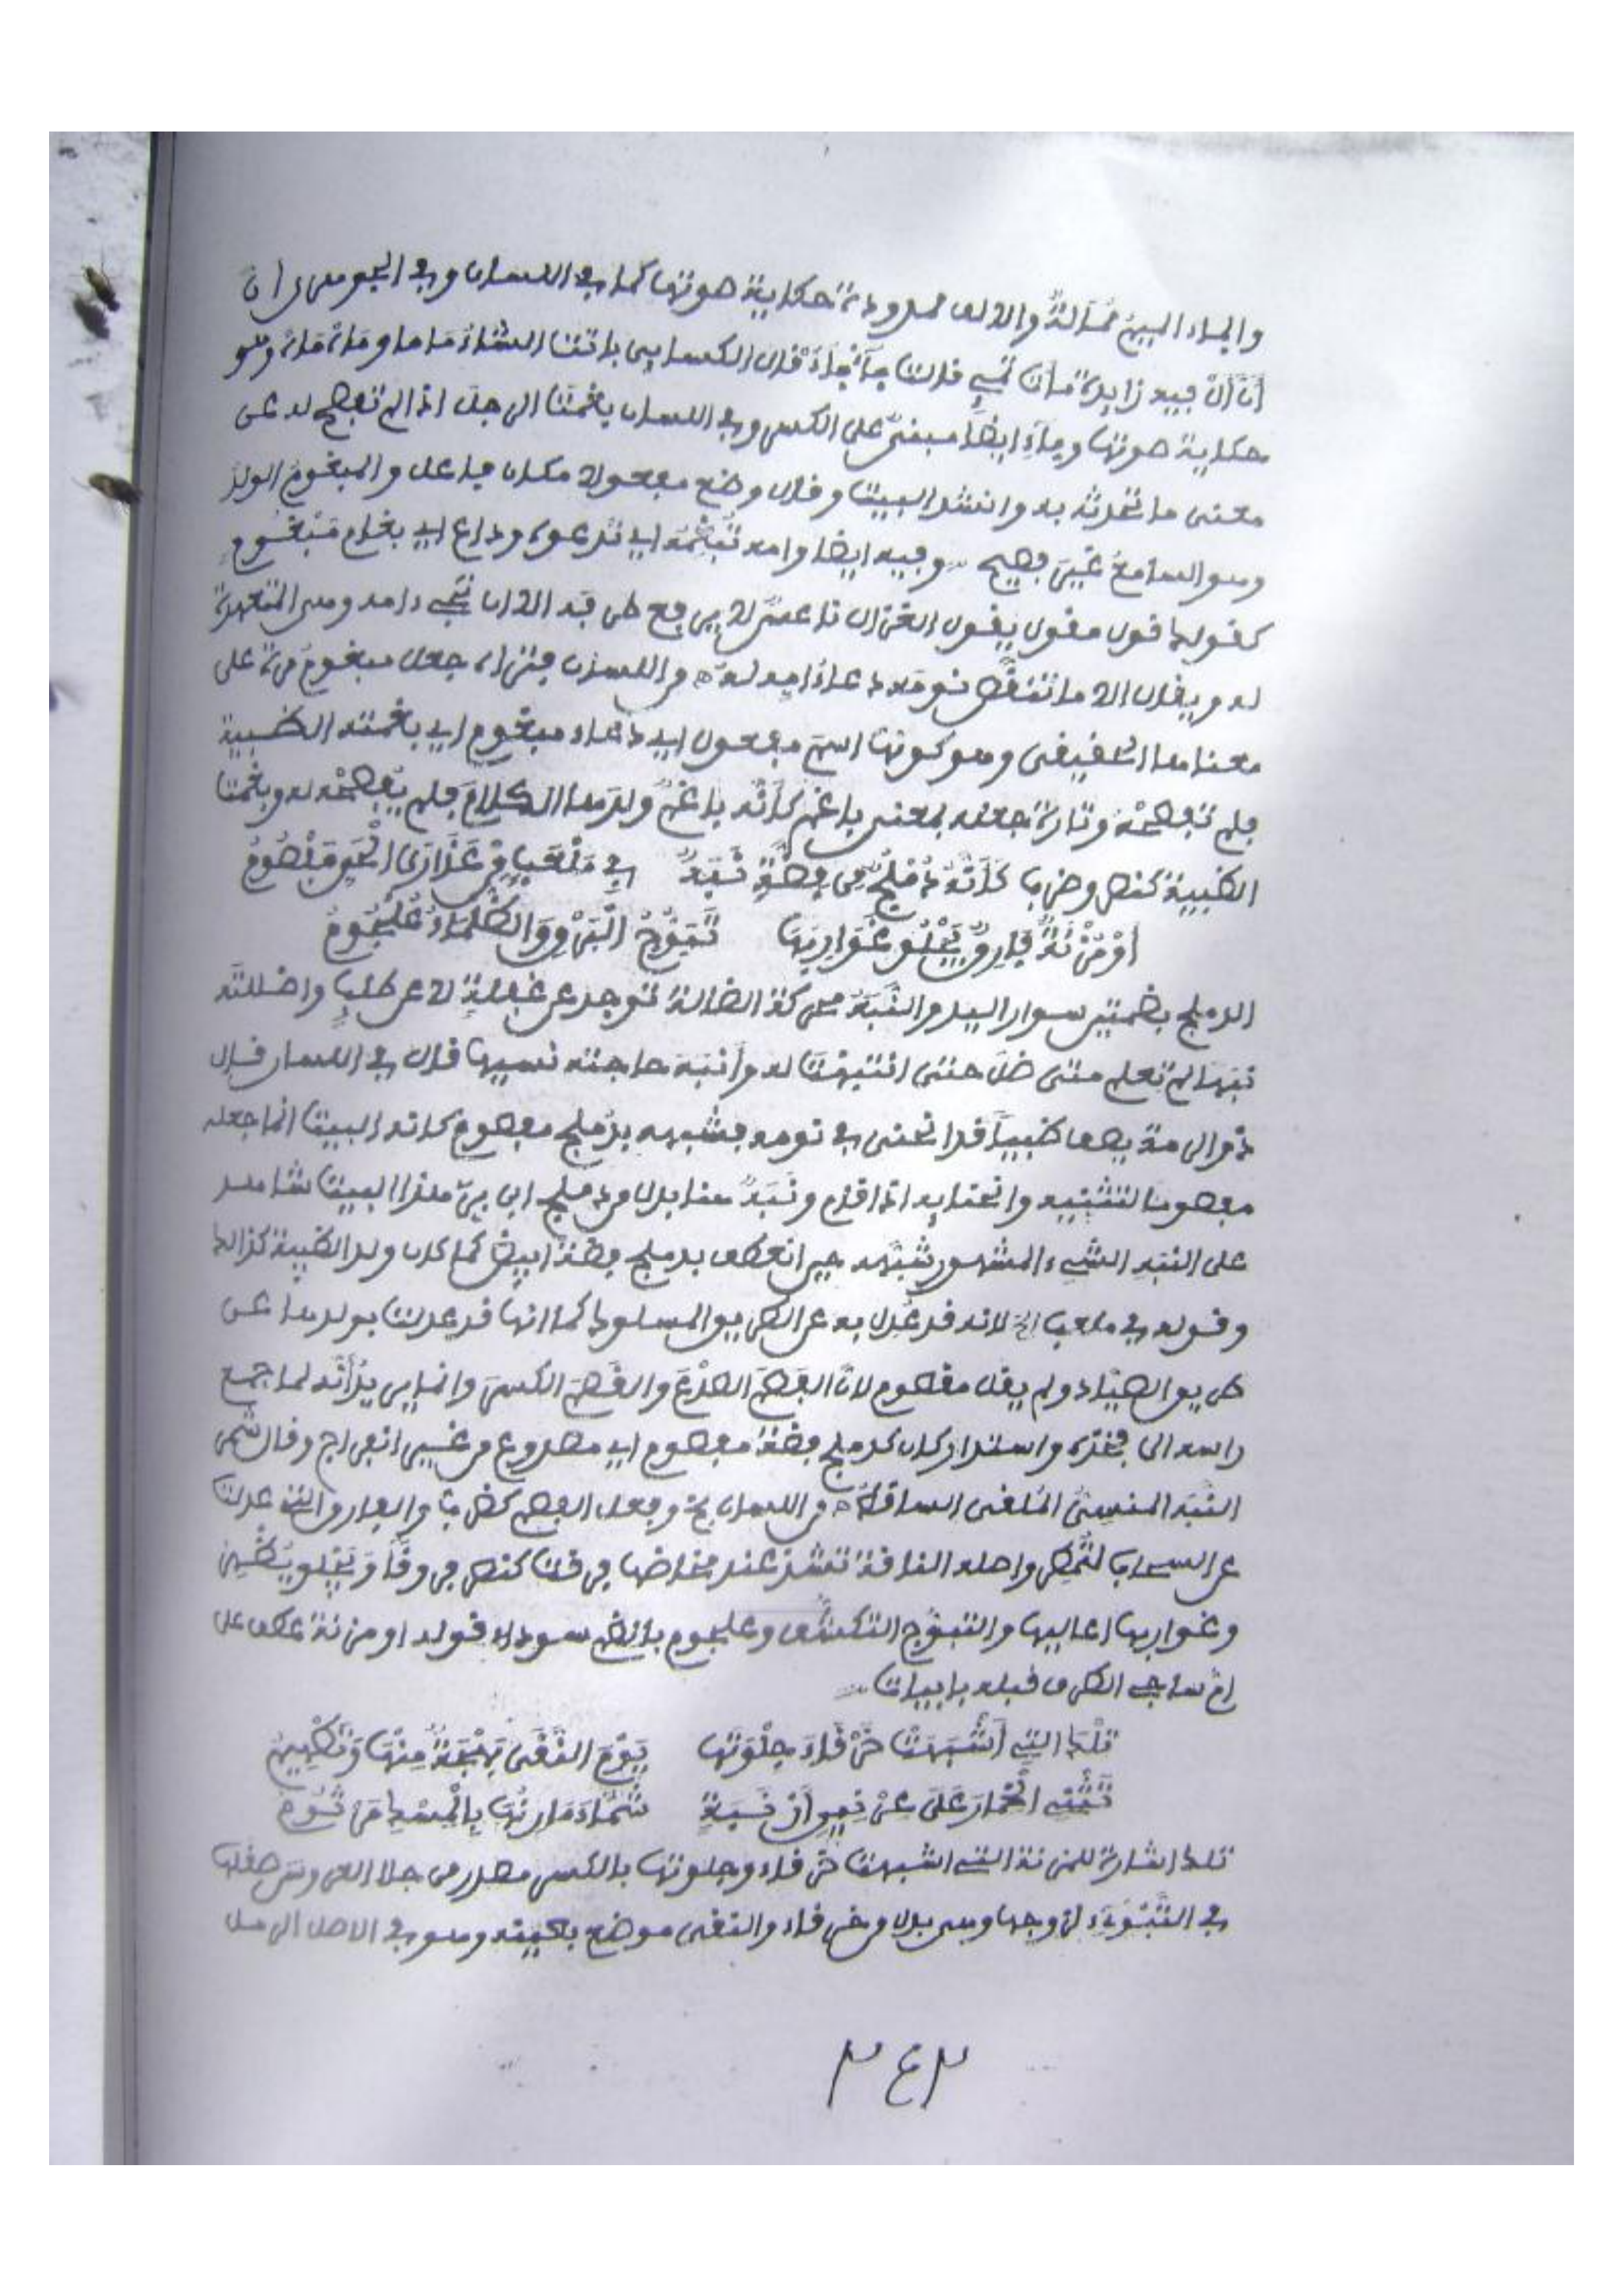 والماء الميم ممالة والالف ممدودة حكاية صوتها كما في اللسان وفي الجوهري ان
أنّ ال فيه زايدة قالت ماء قال الكساءي باتت الشاة ليلتها ماما وماء ماء وهو
حكاية صوتها وماءِ ايضا مبنى على الكسر وفي اللسان بغمت الرجل اذا لم تفصح له عن
معنى ما تحدثه به وانشد البيت وقال وضع مفعولا مكان فاعل والمبغوم الولد
وهو السامع غير فصيح وفيه ايضا وامه تبغمه اي تدعوه وداع اي بغام مبغوم
كقولك قول مقول يقول الغزال ناعس لا يرفع طرفه الا ان تجيء امه وهي المتعهدة
له ويقال الا ما تنقص نومه دعاءُ امه له وللسان فتراه جعل مبغوم مرة على
معناها الحقيقي وهو كونها اسم مفعول اي دعاء مبغوم اي بغمته الظبية
فلم تفصحه وتارة جعله بمعنى باغم كأنه باغم ولدها الكلام فلم يفصحه له وبغمت
الظبية كنصر وضرب كَأَنَّهُ دُمْلُجٌ مِن فِضَّةٍ نَبَهٌ في مَلْعَبٍ مِنْ عَذَارَى الْحَيِّ مَفْصُومُ
أوْ مُزْنَةٌ فَارِقٌ يَجْلُو غَوَارِبَهَا تَبَوُّجُ الْبَرْقِ وَالظَّلْمَاءُ عُلْجُومُ
الدملج بضمتين سوار اليد والنَّبَهُ محركة الضالة توجد عن غفلةٍ لا عن طلبٍ واضللته
نبها لم تعلم متى ضل حتى انتبهت له وأنبه حاجته نسيها قال في اللسان قال
ذو الرمة يصف ظبياً قد انحنى في نومه فشبهه بدُملج مفصوم كانه البيت انما جعله
مفصوما لتثنيه وانحنايه اذا قام ونَبَهٌ هنا بدل من دملج ابن بري هذا البيت شاهد
على النبه الشيء المشهور شبهه حين انعطف بدملج فضة ابيض كما كان ولد الظبية كذالك
وقوله في ملعب الخ لانه قد عُدل به عن الطريق المسلوك كما انها قد عدلت بولدها عن
طريق الصياد ولم يقل مقصوم لان الفصم الصدع والقصم الكسر وانما يريد أنه لما جمع
راسه الى فخذه واستدار كان كدملج فضة مفصوم اي مصدوع من غير انفراج وقال شمر
النبه المنسيُّ المُلقى الساقط من اللسان بخ وفعل الفصم كضرب والفارق التي عدلت
عن السحاب لتمطر واصله الناقة تنشد عند مخاضها فرقت كنصر فروقاً ويجلو يظهر
وغواربها اعاليها والتبوّج التكشف وعلجوم بالضم سوداء قوله او مزنة عطف على
ام ساجي الطرف قبله بابيات
تِلْكَ التِي أَشْبَهَتْ خَرْقَاءَ جِلْوَتُها يَوْمَ النَّقَى بَهْجَةٌ مِنْهَا وَتَطْهِيمُ
تَثْنِي الْخِمَارَ عَلَى عِرْنِينِ أَرْنَبَةٍ شَمَّاءَ مَارِنُهَا بِالْمِسْكِ مَرْثُومُ
تلك اشارة للمزنة التي اشبهت خرقاء وجلوتها بالكسر مصدر من جلا العروس صقلها
في التَّبْنِوة لزوجها وهي بدل من خرقاء والنقى موضع بعينه وهو في الاصل الرمل
٣٤٣